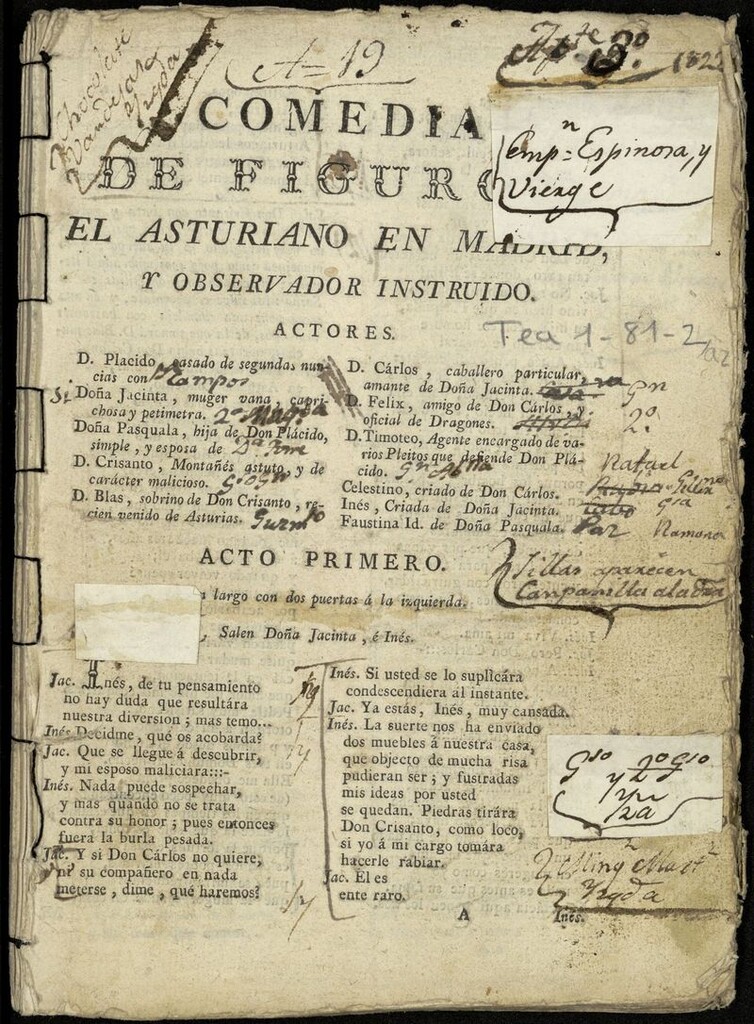 Chocolate
A=19
Apte 3º 1822
COMEDIA
empn Espinosa, y
Vierge
DE FIGURO
EL ASTURIANO EN MADRID,
Y OBSERVADOR INSTRUIDO.
ACTORES.
Tea 1-81-2,
D. Placido, casado de segundas nun-
cias con
Campos
Si
Doña Jacinta, muger vana, capri-
chosa y petimetra. 2ª
Doña Pasquala, hija de Don Plácido,
simple, y esposa de
D. Crisanto, Montañés astuto, y de
carácter malicioso.
D. Blas, sobrino de Don Crisanto, re-
cien venido de Asturias.
D. Cárlos, caballero particular,
amante de Doña Jacinta.
D. Felix, amigo de Don Cárlos, y
oficial de Dragones. 2º
D. Timoteo, Agente encargado de va-
rios Pleitos que defiende Don Plá-
cido.
Rafael
Celestino, criado de Don Cárlos.
Inés, Criada de Doña Jacinta.
Faustina Id. de Doña Pasquala. Paz Ramona
ACTO PRIMERO.
Sillas aparecen
Campanilla
largo con dos puertas á la izquierda.
, Salen Doña Jacinta, é Inés.
Jac. Inés, de tu pensamiento
no hay duda que resultára
nuestra diversion; mas temo...
Inés. Decidme, qué os acobarda?
Jac. Que se llegue á descubrir,
y mi esposo maliciara:::-
Inés. Nada puede sospechar,
y mas quando no se trata
contra su honor; pues entonces
fuera la burla pesada.
Jac. Y si Don Cárlos no quiere,
ni su compañero en nada
meterse, dime, qué haremos?
Inés. Si usted se lo suplicára
condescendiera al instante.
Jac. Ya estás, Inés, muy cansada.
Inés. La suerte nos ha enviado
dos muebles á nuestra casa,
que objecto de mucha risa
pudieran ser; y fustradas
mis ideas por usted
se quedan. Piedras tirára
Don Crisanto, como loco,
si yo á mi cargo tomára
hacerle rabiar.
Jac. El es
ente raro.
A
Inés.